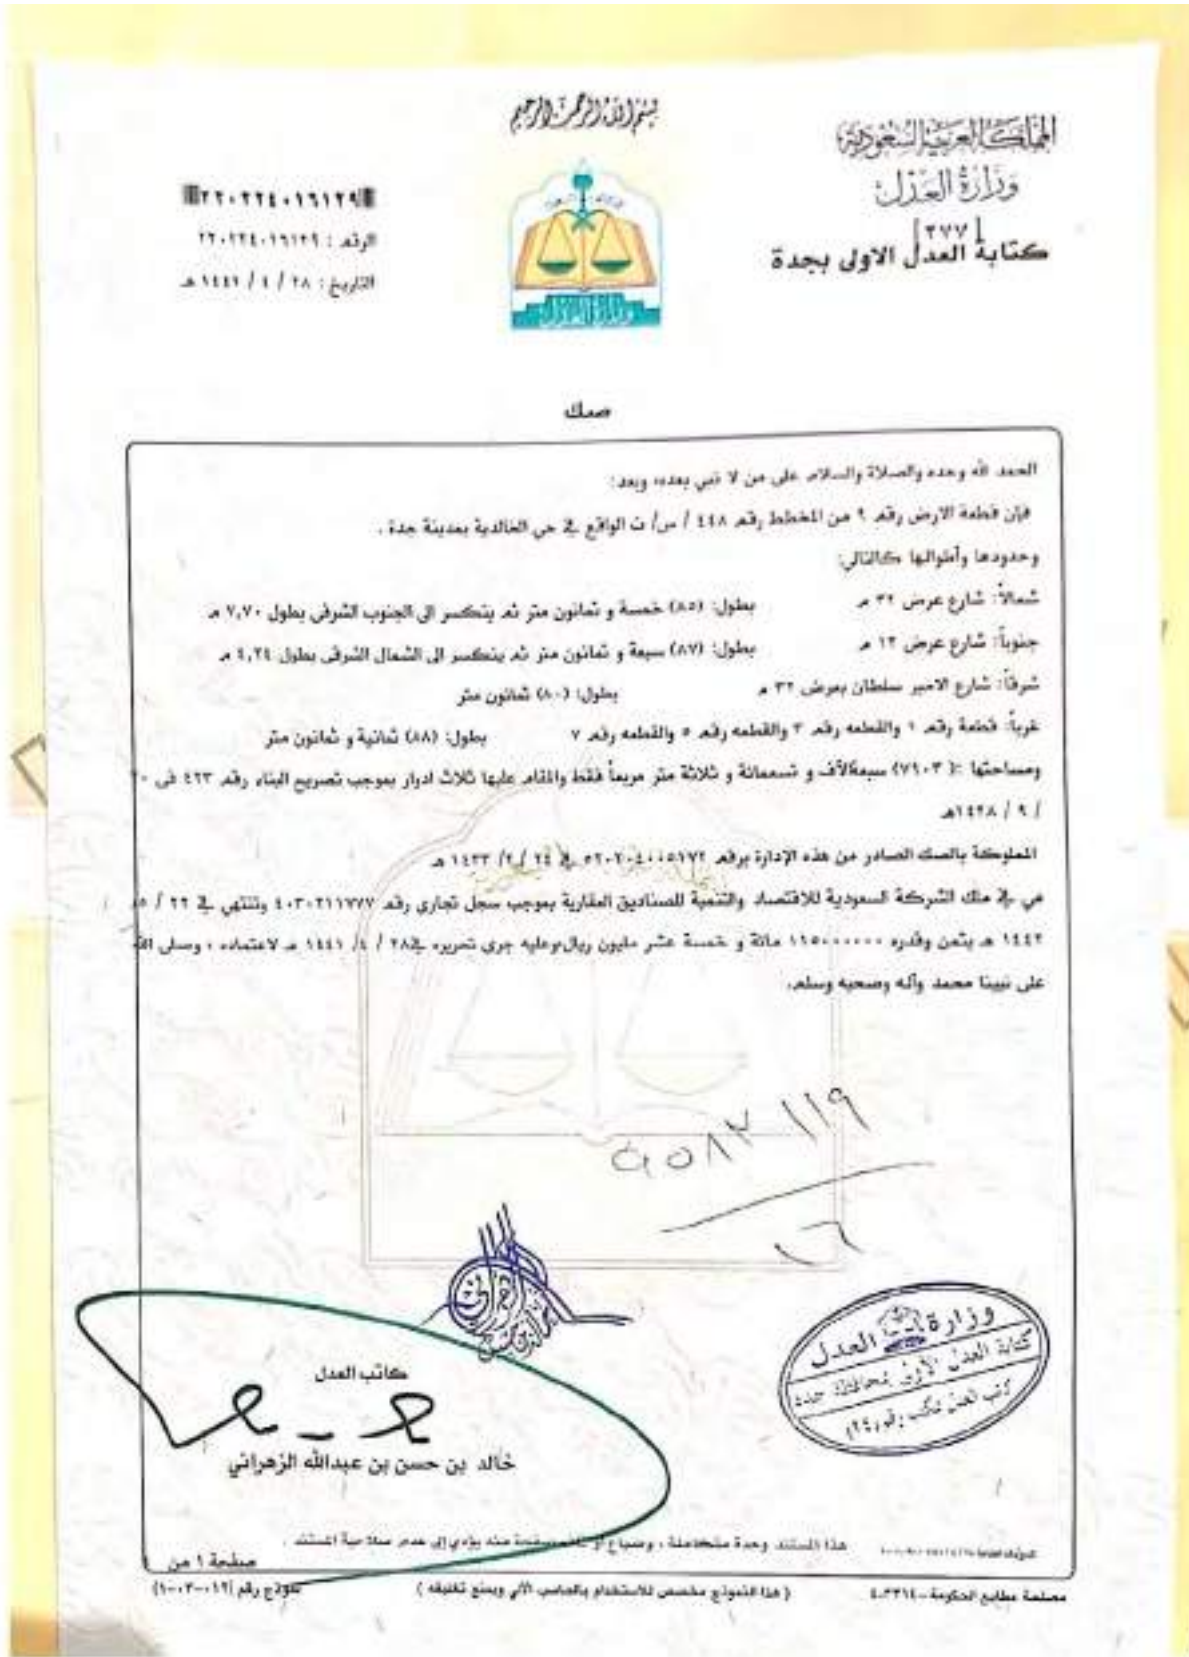 بسم الله الرحمن الرحيم
المملكة العربية السعودية
وزارة العدل
[٢٧٧]
كتابة العدل الاولى بجدة
٢٢٠٢٢٤٠١٦١٢٩
الرقم : ٢٢٠٢٢٤٠١٦١٢٩
التاريخ : ٢٨ / ٤ / ١٤٤١ هـ
وزارة العدل
صك
الحمد لله وحده والصلاة والسلام على من لا نبي بعده، وبعد:
فإن قطعة الارض رقم ٩ من المخطط رقم ٤٤٨ / س/ ت الواقع في حي الخالدية بمدينة جدة .
وحدودها وأطوالها كالتالي:
شمالاً: شارع عرض ٣٢ م بطول: (٨٥) خمسة و ثمانون متر ثم ينكسر الى الجنوب الشرقي بطول ٧,٧٠ م
جنوباً: شارع عرض ١٢ م بطول: (٨٧) سبعة و ثمانون متر ثم ينكسر الى الشمال الشرقي بطول ٤,٢٤ م
شرقاً: شارع الامير سلطان بعرض ٣٢ م بطول: (٨٠) ثمانون متر
غرباً: قطعة رقم ١ والقطعه رقم ٣ والقطعه رقم ٥ والقطعه رقم ٧ بطول: (٨٨) ثمانية و ثمانون متر
ومساحتها :( ٧٩٠٣) سبعةآلاف و تسعمائة و ثلاثة متر مربعاً فقط والمقام عليها ثلاث ادوار بموجب تصريح البناء رقم ٤٢٣ في ٢٠
/ ٩ / ١٤٢٨هـ
المملوكة بالصك الصادر من هذه الإدارة برقم ٥٢٠٢٠٤٠٠٥١٧٢ في ٢٤ / ٢/ ١٤٣٣ هـ
هي في ملك الشركة السعودية للاقتصاد والتنمية للصناديق العقارية بموجب سجل تجاري رقم ٤٠٣٠٢١١٧٧٧ وتنتهي في ٢٢ / ٥/
١٤٤٢ هـ بثمن وقدره ١١٥٠٠٠٠٠٠ مائة و خمسة عشر مليون ريال،وعليه جرى تحريره في٢٨ / ٤/ ١٤٤١ هـ لاعتماده ، وصلى الله
على نبينا محمد وآله وصحبه وسلم.
كاتب العدل
خالد بن حسن بن عبدالله الزهراني
وزارة العدل
كتابة العدل الأولى بمحافظة جدة
هذا المستند وحدة متكاملة ، وضياع أو تلف صفحة منه يؤدي إلى عدم صلاحية المستند .
صفحة ١ من
مصلحة مطابع الحكومة - ٤٠٣٣١٤
( هذا النموذج مخصص للاستخدام بالحاسب الآلي ويمنع تغليفه )
نموذج رقم (١٢-٠٣-٠١)